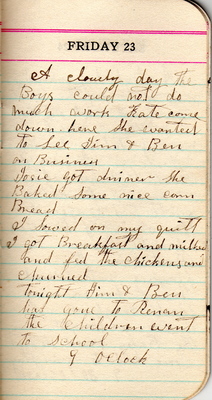 FRIDAY 23
A cloudy day the
Boys could not do
much work Kate come
down here She wanted
to See Jim & Ben
on Business
Josie got dniner She
Baked Some nice corn
Bread
I Sowed on my quilt
I got Breakfast and milked
and fed the chickens and
churned
tonight Jim & Ben
has gone to
the Children went
to School
9 Oclock